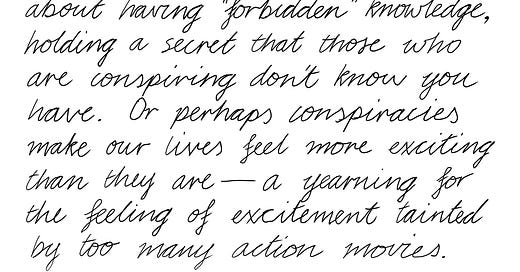 about having "forbidden" knowledge,
holding a secret that those who
are conspiring don't know you
have. Or perhaps conspiracies
make our lives feel more exciting
than they are — a yearning for
the feeling of excitement tainted
by too many action movies.